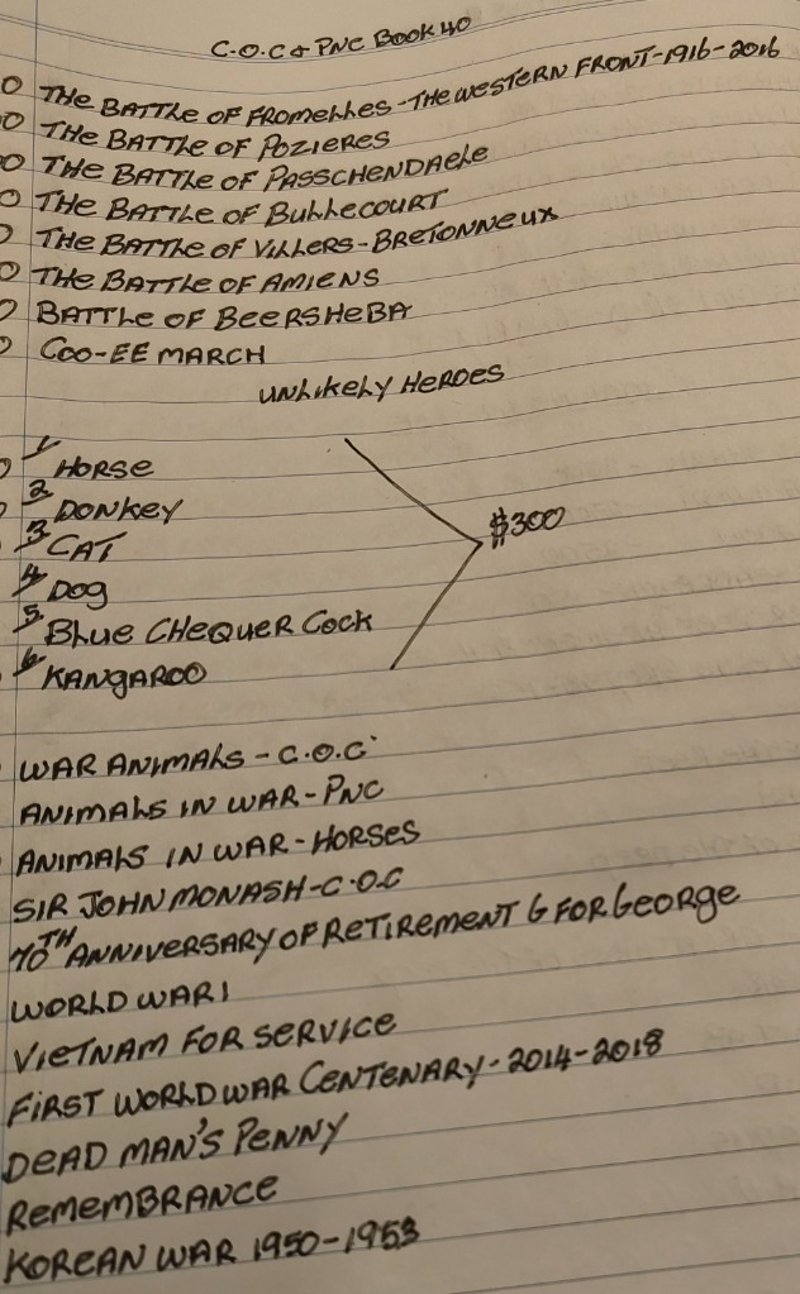 C.O.C & PNC BOOK 40
O THE BATTLE OF FROMELLES - THE WESTERN FRONT - 1916 - 2016
O THE BATTLE OF POZIERES
O THE BATTLE OF PASSCHENDAELE
O THE BATTLE OF BULLECOURT
O THE BATTLE OF VILLERS - BRETONNEUX
O THE BATTLE OF AMIENS
O BATTLE OF BEERSHEBA
O COO-EE MARCH
UNLIKELY HEROES
1 HORSE
2 DONKEY
$300
3 CAT
4 DOG
5 BLUE CHEQUER COCK
6 KANGAROO
WAR ANIMALS - C.O.C
ANIMALS IN WAR - PNC
ANIMALS IN WAR - HORSES
SIR JOHN MONASH - C.O.C
70TH ANNIVERSARY OF RETIREMENT G FOR GEORGE
WORLD WAR 1
VIETNAM FOR SERVICE
FIRST WORLD WAR CENTENARY - 2014 - 2018
DEAD MAN'S PENNY
REMEMBRANCE
KOREAN WAR 1950 - 1953